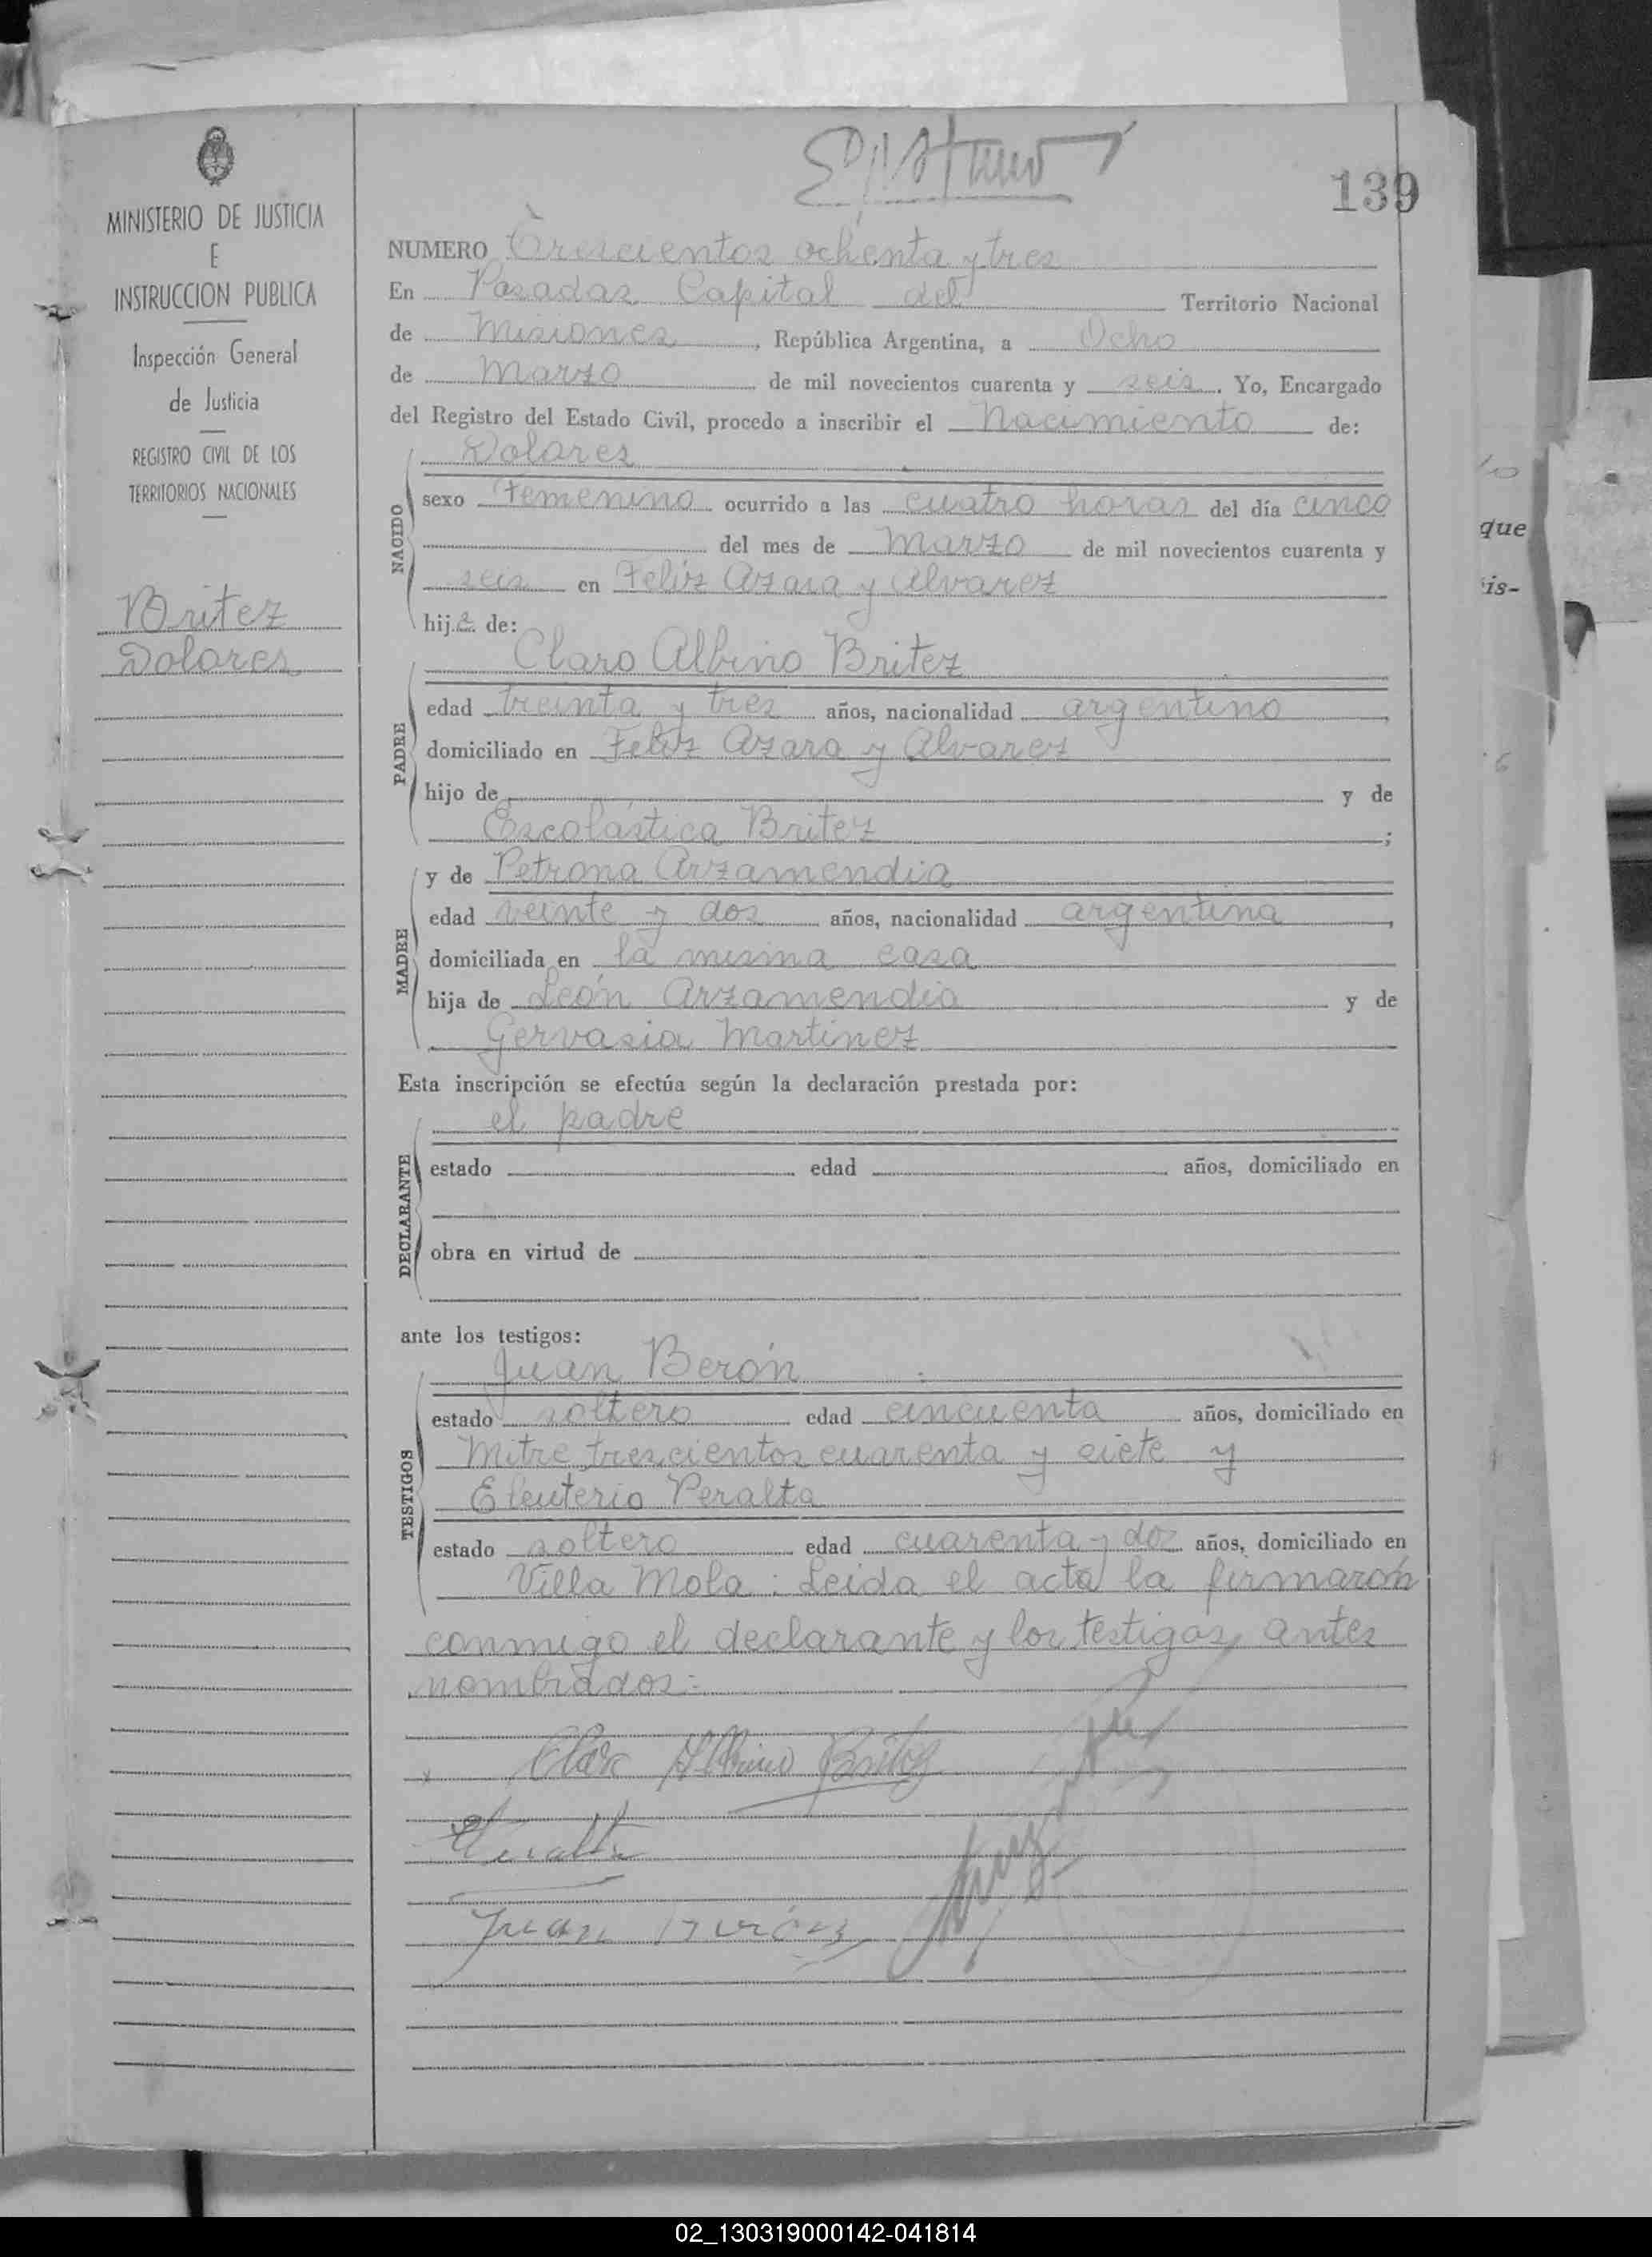 139
MINISTERIO DE JUSTICIA
E
INSTRUCCION PUBLICA
Inspección General
de Justicia
REGISTRO CIVIL DE LOS
TERRITORIOS NACIONALES
Britez
Dolores
NUMERO Trescientos ochenta y tres
En Posadas Capital del Territorio Nacional
de Misiones, República Argentina, a Ocho
de Marzo de mil novecientos cuarenta y seis. Yo, Encargado
del Registro del Estado Civil, procedo a inscribir el Nacimiento de:
Dolores
NACIDO
sexo Femenino ocurrido a las cuatro horas del día cinco
del mes de Marzo de mil novecientos cuarenta y
seis en Feliz Azara y Alvarez
hija de:
Claro Albino Britez
PADRE
edad treinta y tres años, nacionalidad argentino,
domiciliado en Feliz Azara y Alvarez
hijo de y de
Escolástica Britez;
y de Petrona Arzamendia
MADRE
edad veinte y dos años, nacionalidad argentina,
domiciliada en la misma casa
hija de León Arzamendia y de
Gervasia Martinez
Esta inscripción se efectúa según la declaración prestada por:
el padre
DECLARANTE
estado edad años, domiciliado en
obra en virtud de
ante los testigos:
Juan Berón
TESTIGOS
estado soltero edad cincuenta años, domiciliado en
Mitre trescientos cuarenta y siete y
Eleuterio Peralta
estado soltero edad cuarenta y dos años, domiciliado en
Villa Mola: Leida el acta la firmaron
conmigo el declarante y los testigos antes
nombrados:
Claro Albino Britez
Juan Berón
que
is-
02_130319000142-041814